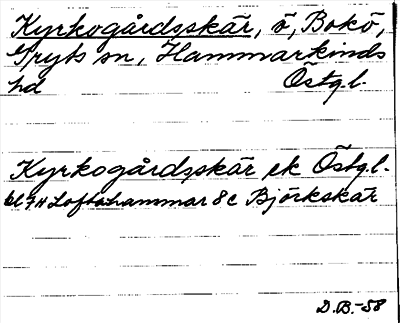 Kyrkogårdsskär, ö, Bokö,
Gryts sn, Hammarkinds
hd Östg.l.
Kyrkogårdsskär ek Östg.l.
bl 7 H Loftahammar 8c Björkskär
D.B.-58